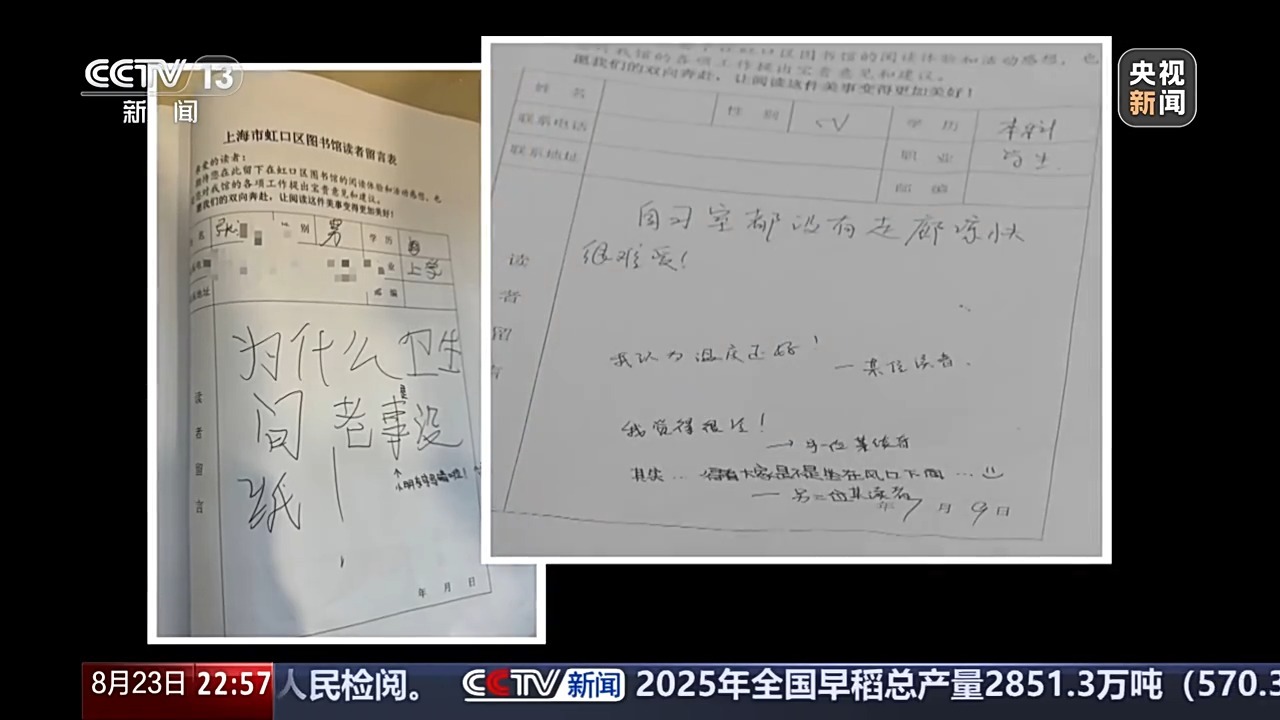 CCTV 13
新闻
央视
新闻
上海市虹口区图书馆读者留言表
亲爱的读者:
期待您在此留下在虹口区图书馆的阅读体验和活动感想,也
对我馆的各项工作提出宝贵意见和建议。
愿我们的双向奔赴,让阅读这件美事变得更加美好!
名 张 别 男 学历
业 上学
地址 邮编
为什么卫生
间老事没
纸!
读者留言
年 月 日
在虹口区图书馆的阅读体验和活动感想,也
我馆的各项工作提出宝贵意见和建议。
愿我们的双向奔赴,让阅读这件美事变得更加美好!
姓名 性别 学历 本科
联系电话 职业 学生
联系地址 邮编
自习室都没有走廊凉快
很难受!
我认为温度还好!
—某位读者.
我觉得很冷!
→另一位某读者
其实… 得看大家是不是坐在风口下面…
—另二位某读者
读者留言
年7月9日
8月23日 22:57 人民检阅。 CCTV新闻 2025年全国早稻总产量2851.3万吨(570.3